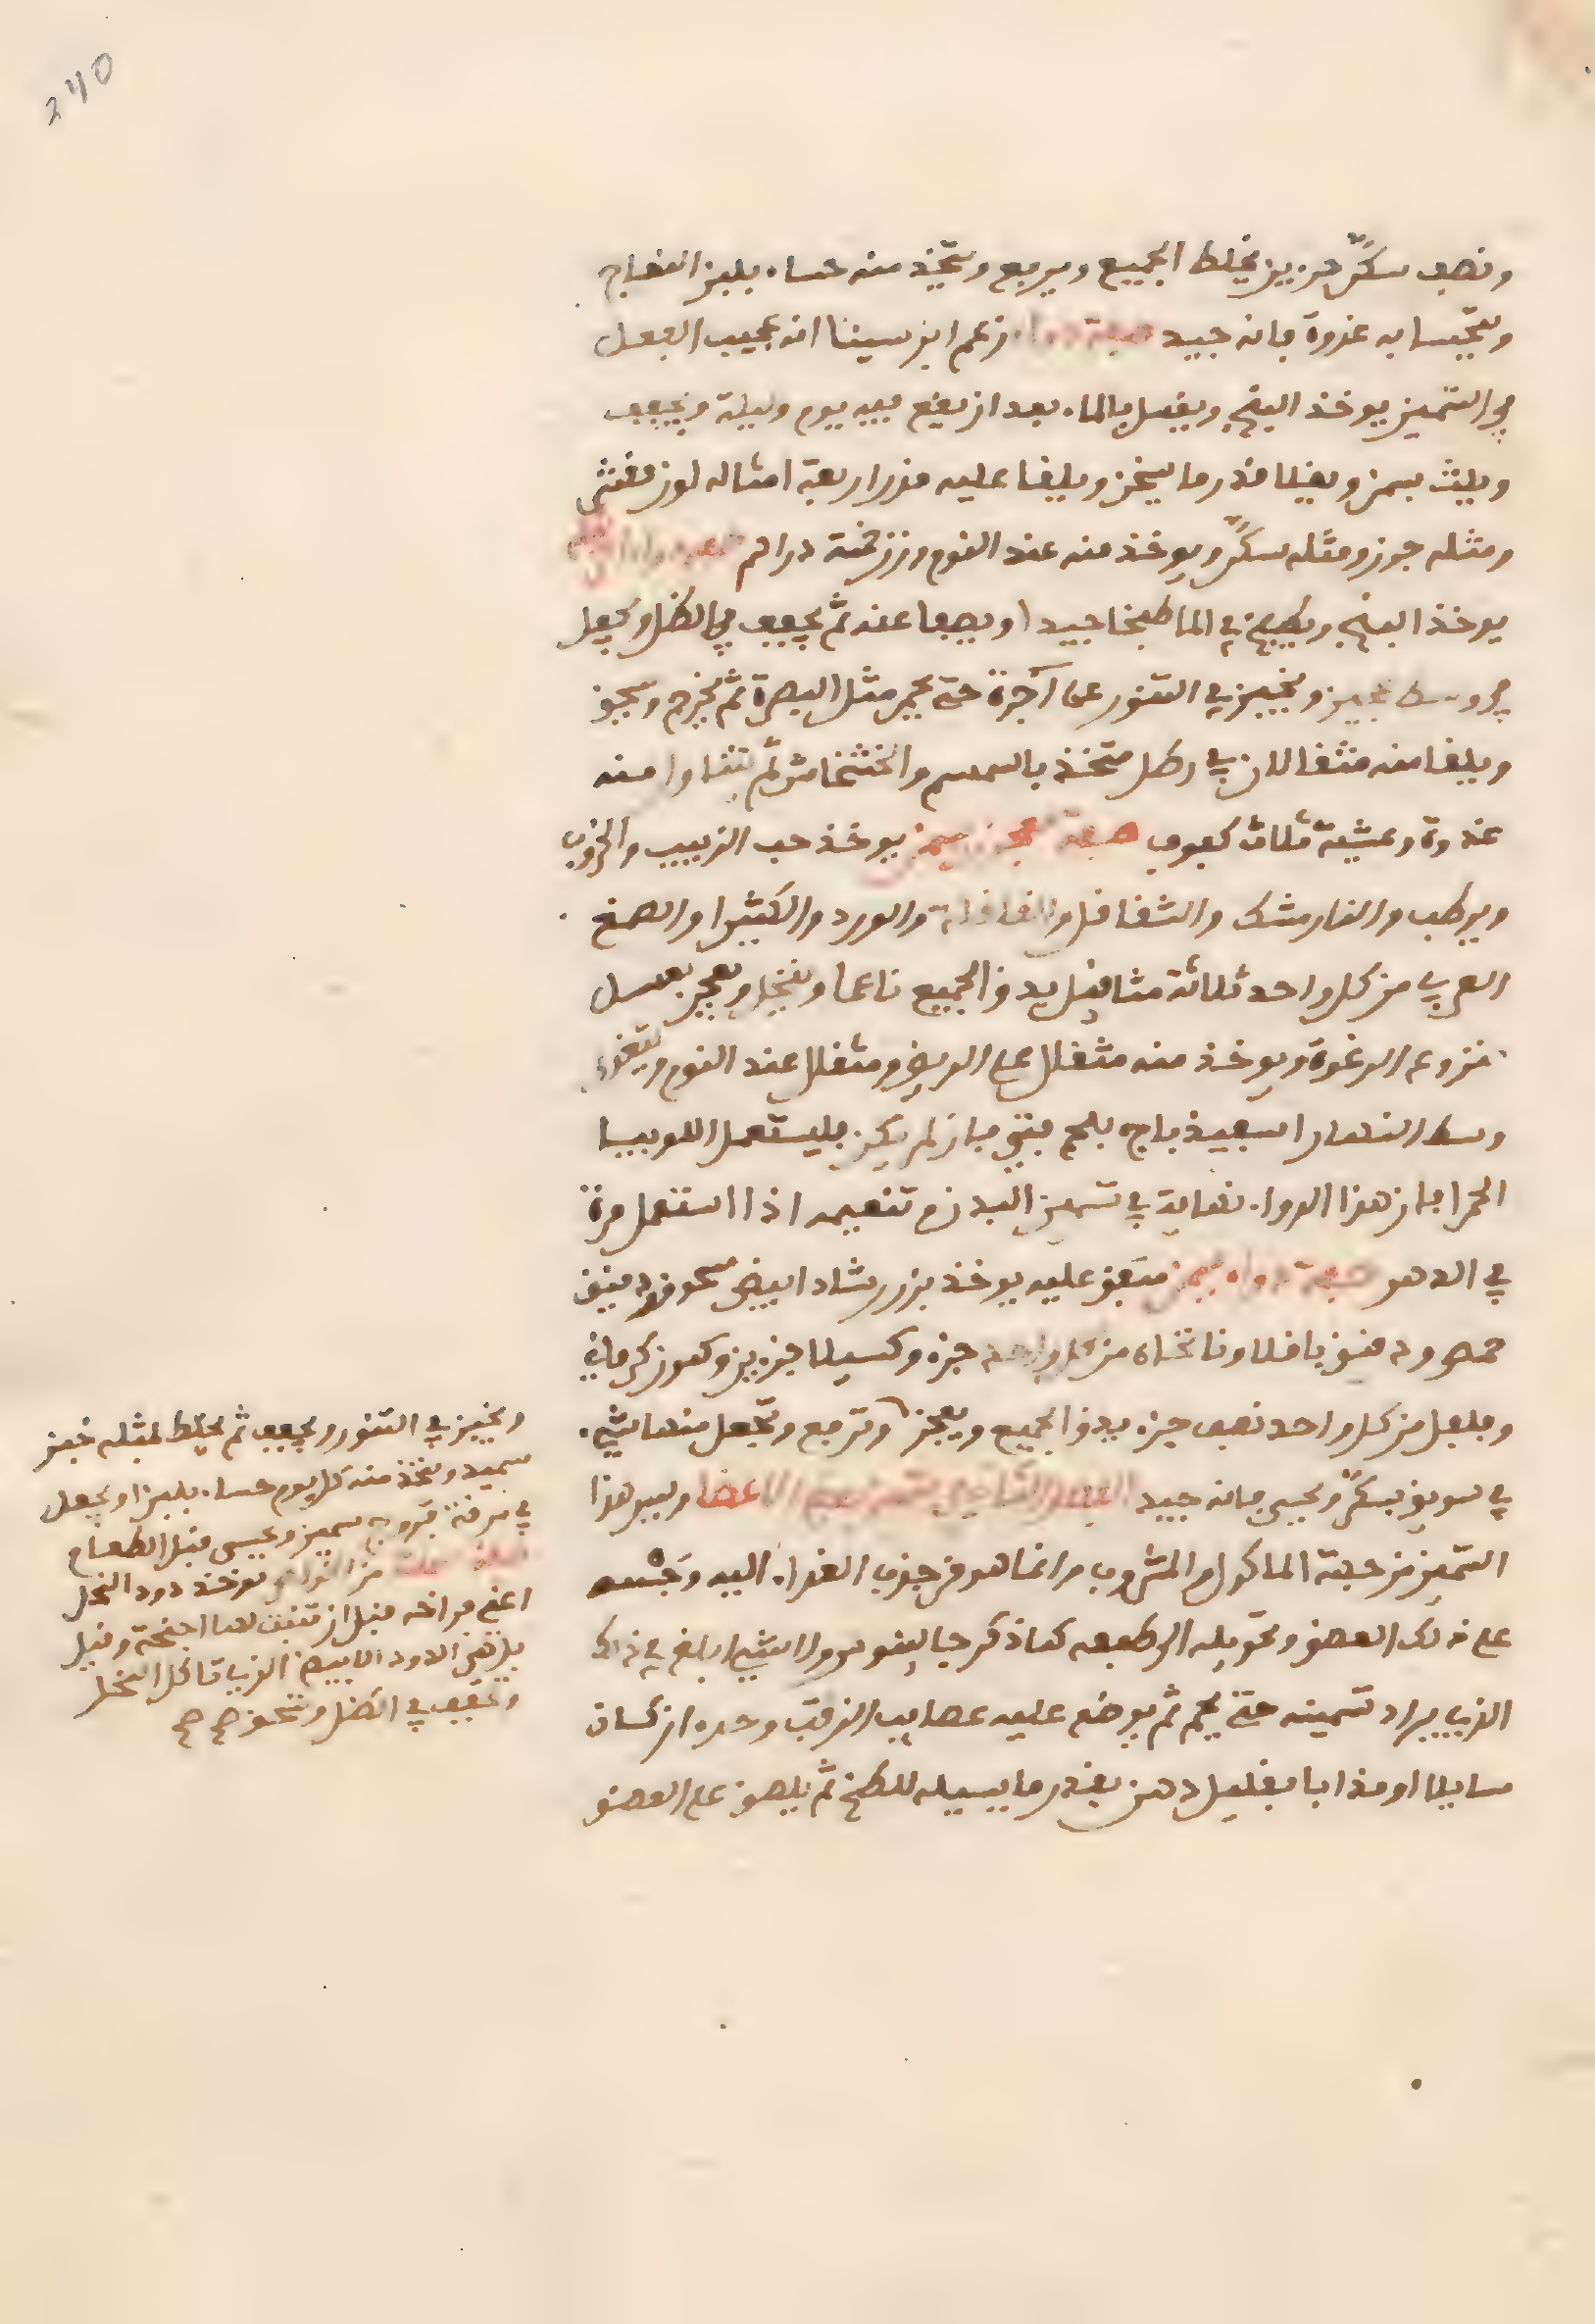 240
ونصف سكّر جزيز يخلط الجميع ويرفع ويتخذ منه حساء بلبن النعاج
ويتحسا به غدوة فانه جيد صفة دواء زعم ابن سينا انه عجيب الفعل
في التسمين يوخذ البنج ويغسل بالماء بعد ان ينقع فيه يوم وليلة ويجفف
ويلث بسمن ويغلا قدر ما يسخن ويلقا عليه مزر اربعة امثاله لوز مقشي
ومثله جوز ومثله سكّر ويوخذ منه عند النوم وزن خمسة دراهم
يوخذ البنج ويطبخ في الماء طبخا جيدا ويصفا عنه ثم يجفف في الظل ويجعل
في وسط عجين ويخبز في التنور على آجرة حتى يحمر مثل البصرة ثم يخرج ويسحق
ويلقا منه مثقالان في رطل متخذ بالسمسم والخشخاش ثم يتناوا منه
غدوة وعشية ثلاث كفوف صفة معجون يسمن يوخذ حب الزبيب والخروب
ويرطب والنارمشك والشقاقل والقاقلة والورد والكثيرا والصمغ
العربي من كل واحد ثلاثة مثاقيل يدق الجميع ناعما وينخل ويعجن بعسل
منزوع الرغوة ويوخذ منه مثقال على الريق ومثقال عند النوم ويتغذى
وسط النهار اسبيذباج بلحم فتي فان لم يكن فليستعمل اللوبيا
الحمرا فان هذا الدواء نهاية في تسمين البدن وتنعيمه اذا استعمل مرة
في الدهر صفة دواء يسمن متفق عليه يوخذ بزر رشاد ابيض مسحوق ودقيق
حمص ودقيق باقلا ونانخاه من كل واحد جزء وكسيلا جزيين وكمون كرماني
وفلفل من كل واحد نصف جزء يدق الجميع ويعجن وترفع وتجعل منها شيء
في سويق بسكّر ويحسى فانه جيد الفصل الثاني في تسمين بعض الاعضا وليس هذا
التسمين من جهة الماكول والمشروب وانما هو من جذب الغذاء اليه وحبسه
على ذلك العضو وتحويله الى طبعه كما ذكر جالينوس ولا شيء ابلغ في ذلك
الذي يراد تسمينه حتى يحمر ثم يوضع عليه عصايب الزفت وحده ان كان
سايلا او مذابا بقليل دهن بقدر ما يسيله للطخ ثم يلصق على العضو
ويخبز في التنور ويجفف ثم يخلط بمثله خبز
سميد ويتخذ منه كل يوم حساء بلبن او يجعل
في مرقة فروج سمين ويحسى قبل الطعام
من الخواص يوخذ دود النحل
اعني فراخه قبل ان تنبت لها اجنحة وقيل
بل هي الدود الابيض الذي تاكل النحل
ويجفف في الظل ويسحق صح صح